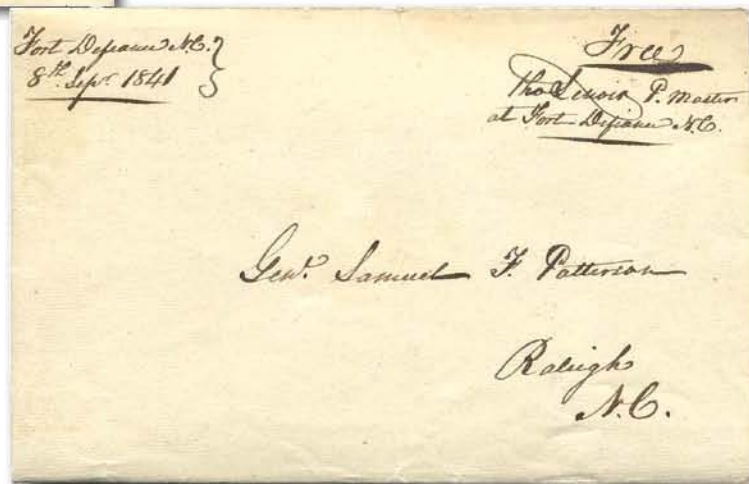 Fort Defiance N.C.
8th Sepr. 1841
Free
Tho Lenoir P. Master
at Fort Defiance N.C.
Genl. Samuel F. Patterson
Raleigh
N.C.